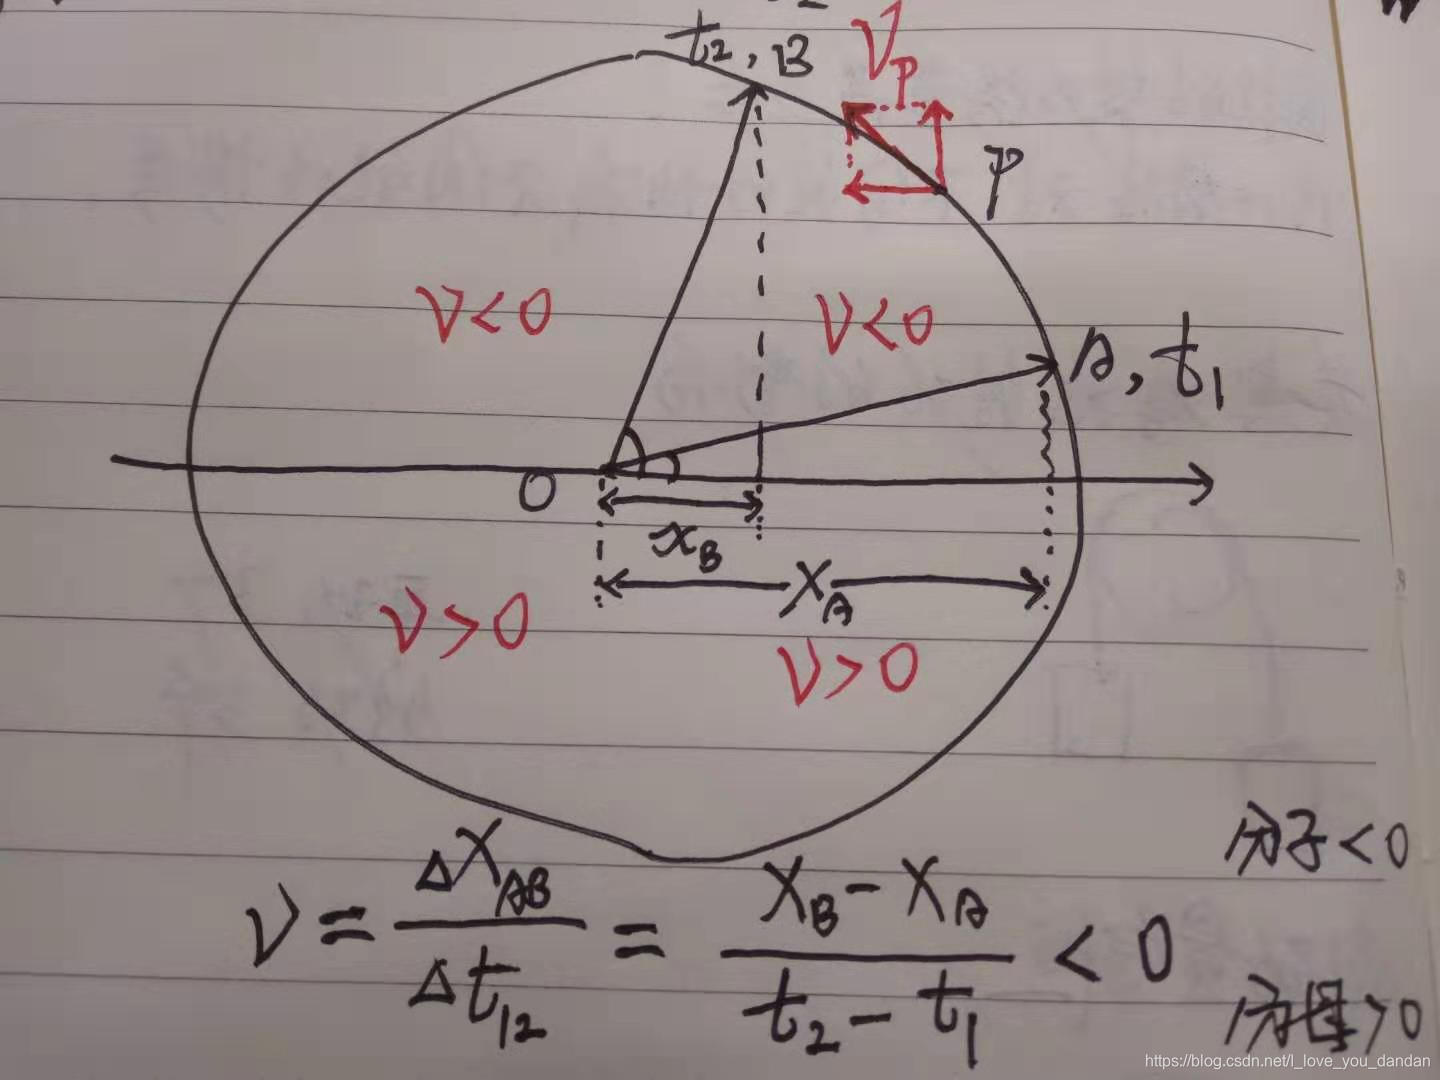 t₂, B
V_P
P
V<0
V<0
A, t₁
O
x_B
X_A
V>0
V>0
分子<0
V = ΔX_AB / Δt₁₂ = (X_B - X_A) / (t₂ - t₁) < 0
分母>0
https://blog.csdn.net/l_love_you_dandan